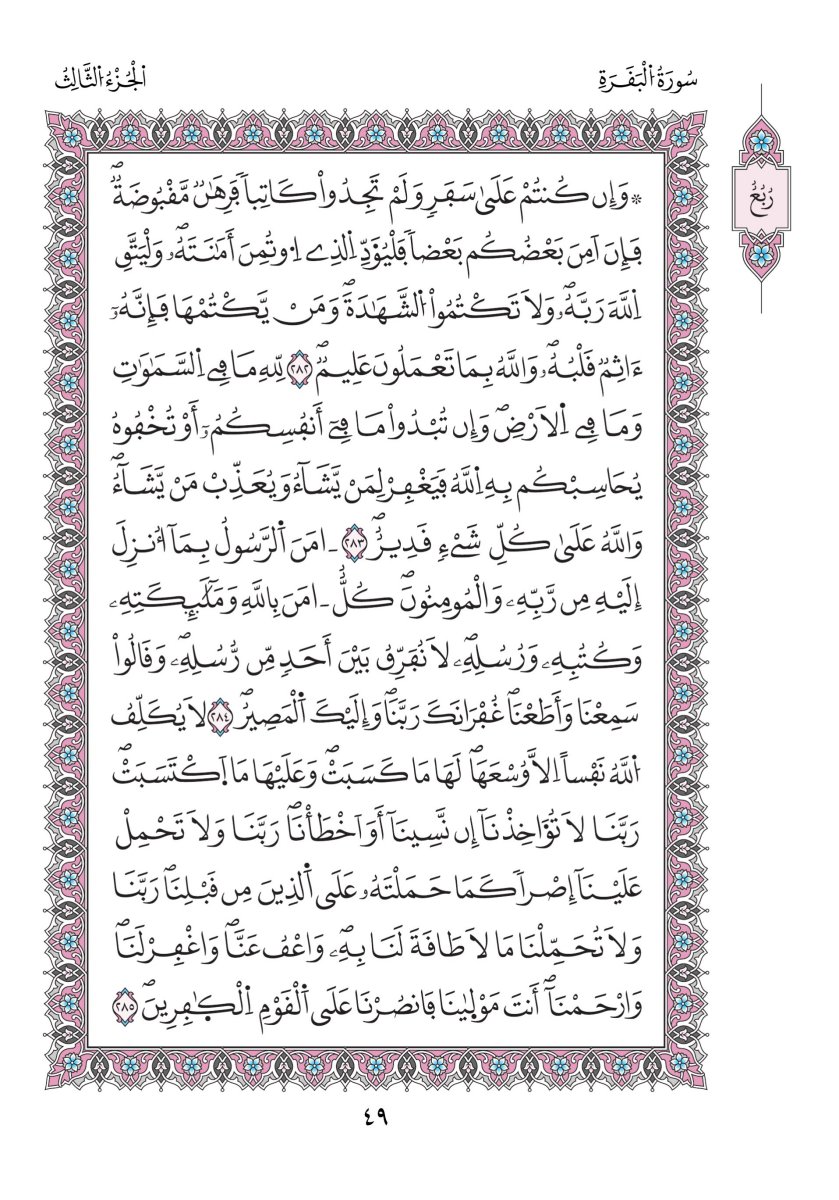 سُورَةُ اُ۬لْبَقَرَةِ
اَ۬لْجُزْءُ اُ۬لثَّالِثُ
رُبُعُ
* وَإِن كُنتُمْ عَلَىٰ سَفَرٖ وَلَمْ تَجِدُواْ كَاتِباٗ فَرِهَٰنٞ مَّقْبُوضَةٞۖ
فَإِنَ اَمِنَ بَعْضُكُم بَعْضاٗ فَلْيُؤَدِّ اِ۬لذِے اِ۟وتُمِنَ أَمَٰنَتَهُۥۖ وَلْيَتَّقِ
اِ۬للَّهَ رَبَّهُۥۖ وَلَا تَكْتُمُواْ اُ۬لشَّهَٰدَةَۖ وَمَنْ يَّكْتُمْهَا فَإِنَّهُۥٓ
ءَاثِمٞ قَلْبُهُۥۖ وَاللَّهُ بِمَا تَعْمَلُونَ عَلِيمٞۖ ٢٨٢ لِّلهِ مَا فِے اِ۬لسَّمَٰوَٰتِ
وَمَا فِے اِ۬لَارْضِۖ وَإِن تُبْدُواْ مَا فِےٓ أَنفُسِكُمُۥٓ أَوْ تُخْفُوهُ
يُحَاسِبْكُم بِهِ اِ۬للَّهُ فَيَغْفِرْ لِمَنْ يَّشَآءُ وَيُعَذِّبْ مَنْ يَّشَآءُۖ
وَاللَّهُ عَلَىٰ كُلِّ شَےْءٖ قَدِيرٌۖ ٢٨٣ اٰمَنَ اَ۬لرَّسُولُ بِمَآ أُنزِلَ
إِلَيْهِ مِن رَّبِّهِۦ وَالْمُومِنُونَۖ كُلٌّ اٰمَنَ بِاللَّهِ وَمَلَٰٓئِكَتِهِۦ
وَكُتُبِهِۦ وَرُسُلِهِۦۖ لَا نُفَرِّقُ بَيْنَ أَحَدٖ مِّن رُّسُلِهِۦۖ وَقَالُواْ
سَمِعْنَا وَأَطَعْنَاۖ غُفْرَانَكَ رَبَّنَاۖ وَإِلَيْكَ اَ۬لْمَصِيرُۖ ٢٨٤ لَا يُكَلِّفُ
اُ۬للَّهُ نَفْساً اِلَّا وُسْعَهَاۖ لَهَا مَا كَسَبَتْۖ وَعَلَيْهَا مَا اَ۪كْتَسَبَتْۖ
رَبَّنَا لَا تُؤَاخِذْنَآ إِن نَّسِينَآ أَوَ اَخْطَأْنَاۖ رَبَّنَا وَلَا تَحْمِلْ
عَلَيْنَآ إِصْراٗ كَمَا حَمَلْتَهُۥ عَلَى اَ۬لذِينَ مِن قَبْلِنَاۖ رَبَّنَا
وَلَا تُحَمِّلْنَا مَا لَا طَاقَةَ لَنَا بِهِۦۖ وَاعْفُ عَنَّاۖ وَاغْفِرْ لَنَاۖ
وَارْحَمْنَآۖ أَنتَ مَوْلَىٰنَا فَانصُرْنَا عَلَى اَ۬لْقَوْمِ اِ۬لْكٰ۪فِرِينَۖ ٢٨٥
٤٩